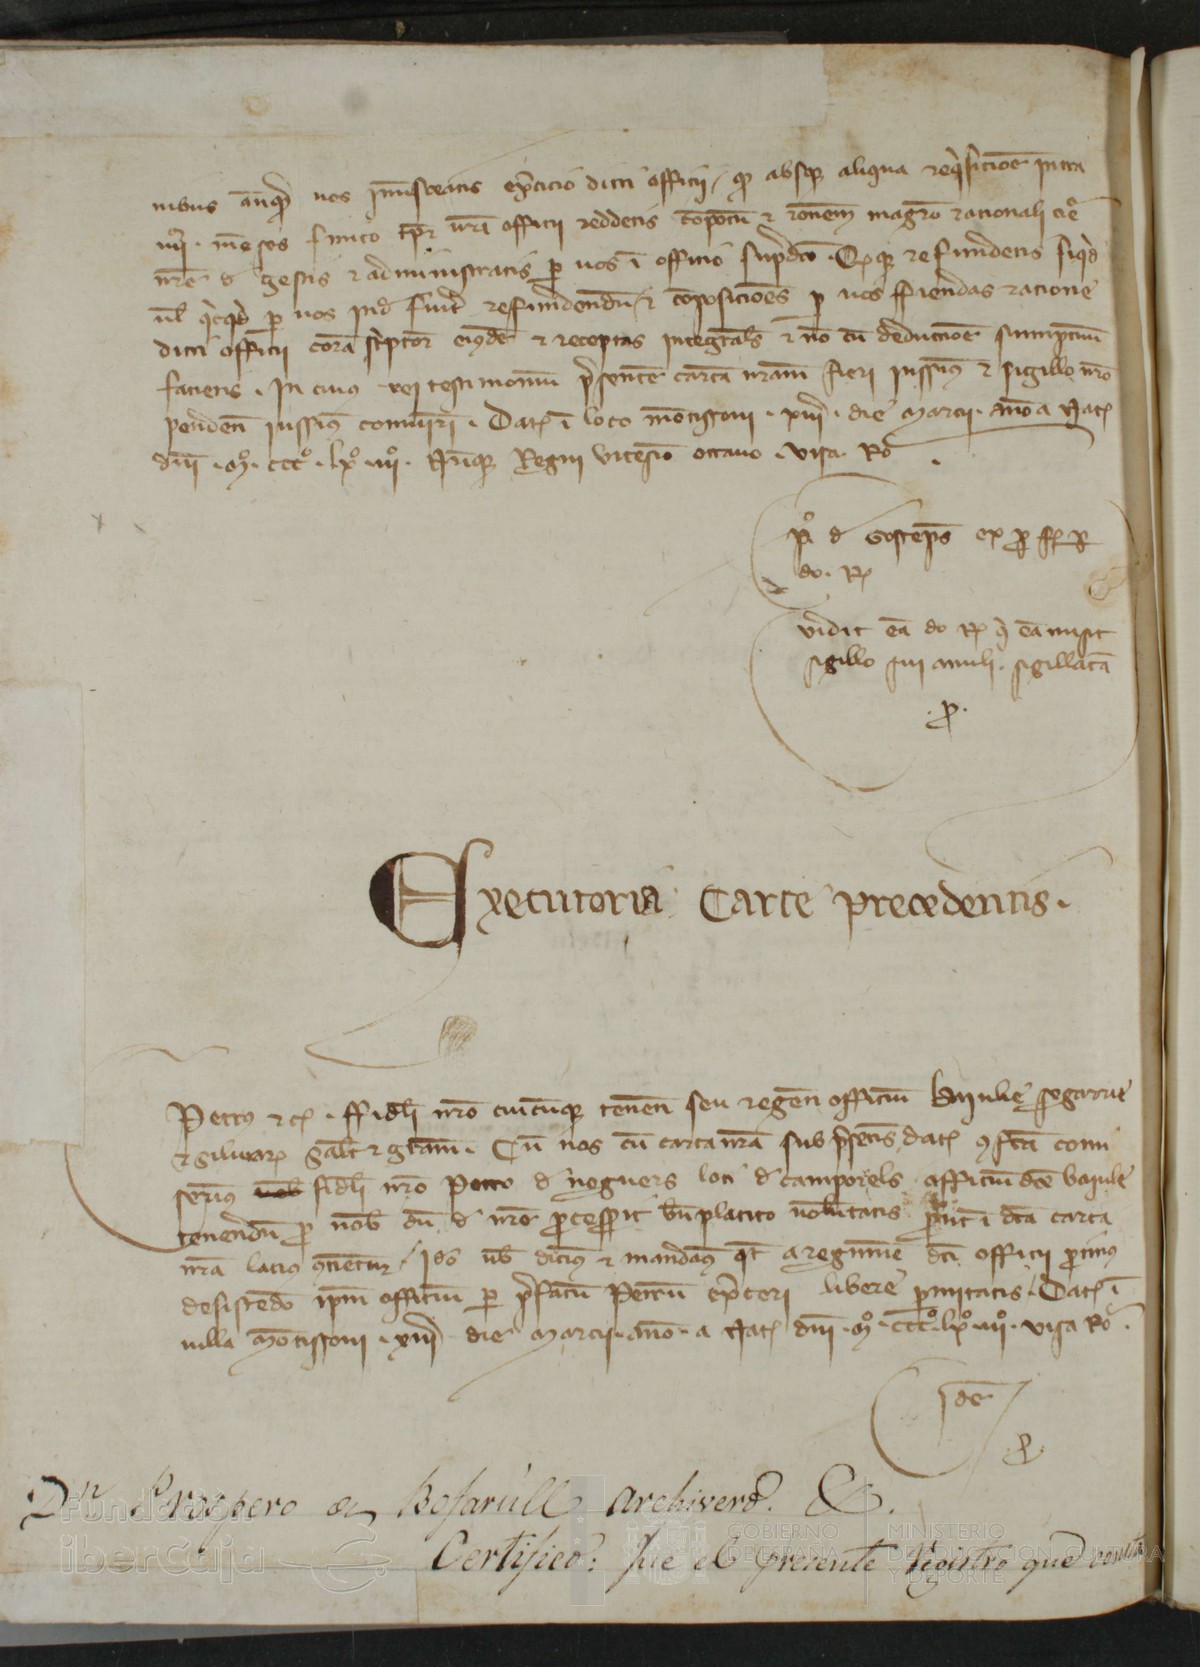 nibus antequam vos inmisceatis exercicio dicti officii, quod absque aliqua requisicione intra
IIIIor menses finito tempore vestri officii reddetis compotum et racionem magistro racionali curie
nostre de gestis et administratis per vos in officio supradicto. Quodque refundetis siquid
vel quicquid per vos inde fuerit refundendum, et composiciones per vos ffiendas racione
dicti officii coram scriptore eiusdem et receptas integraliter et non cum deductione sumptuum
facietis. In cuius rei testimonium presentem cartam nostram fieri iussimus et sigillo nostro
pendenti iussimus communiri. Datum in loco Montissoni. XIII. die Marcii. anno a Nat.
dni. Mº. CCCº. LXº. IIIº. Nostrique Regni vicesimo octavo. Visa Ro.
P. d ex
do. R.
vidit eam do. R. qui eam misit
sigillo sui anuli sigillatam
.P.
Executoria Carte precedentis.
Petrus etc. ffideli nostro cuicumque tenenti seu regenti officium baiulie
. Cum nos cum carta nostra sub presentis dat. confecta comi
serimus fideli nostro Petro de Noguers loci de Camporels officium dicte baiulie
tenendum per nobis dum de nostro processerit beneplacito voluntatis prout in dicta carta
nostra lacius continetur. Ideo vobis dicimus et mandamus quatenus a regimine dicti officii protinus
desistendo ipsum officium per prefatum Petrum exerceri libere permitatis. Dat. in
villa Montissoni. XIII die Marcii anno a Nat. dni. Mº. CCCº. LXº. IIIº. Visa Ro.
Idem
P.
Dn. Prospero de Bofarull Archivero. &.
Certifico: que el presente registro que
Fundación
iberCaja
GOBIERNO
DE ESPAÑA
MINISTERIO
DE EDUCACIÓN, CULTURA
Y DEPORTE